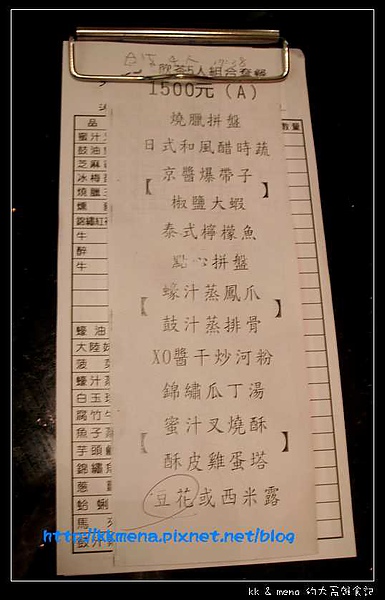 飲茶5人組合套餐
1500元(A)
燒臘拼盤
日式和風醋時蔬
京醬爆帶子
【 】
椒鹽大蝦
泰式檸檬魚
點心拼盤
蠔汁蒸鳳爪
【 】
豉汁蒸排骨
XO醬干炒河粉
錦繡瓜丁湯
蜜汁叉燒酥
【 】
酥皮雞蛋塔
豆花或西米露
品
數量
蜜汁
鼓油
芝麻
冰梅
燒臘
燻
錦繡紅
牛
醉
牛
蠔油
大陸
菠菜
蠔汁蒸
白玉
腐竹牛
魚子
芋頭
錦繡
蔥
蛤蜊
馬
豉汁
http://kkmena.pixnet.net/blog
kk & mena 的大高雄食記